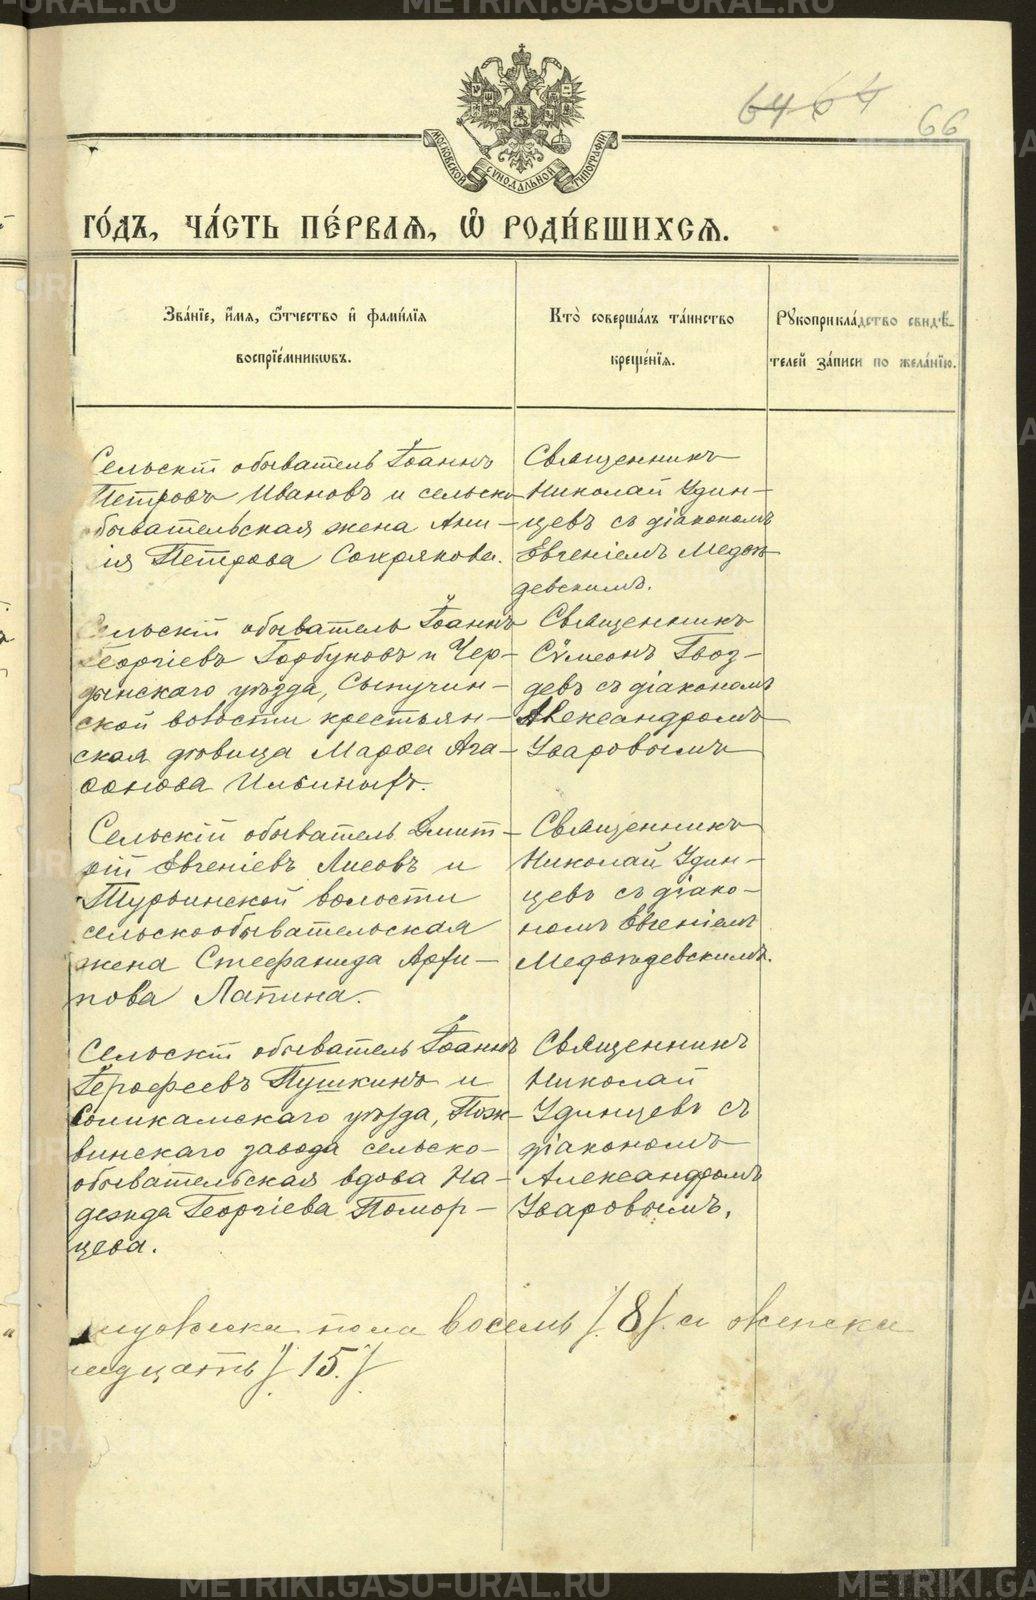 МОСКОВСКОЙ СѴНОДАЛЬНОЙ ТИПОГРАФІИ
64 64
66
ГО́ДЪ, ЧА́СТЬ ПЕ́РВАѦ, Ѽ РОДИ́ВШИХСѦ.
Зва́нїе, и҆́мѧ, ѻ҆́тчество и҆ фами́лїѧ
воспрїе́мникѡвъ.
Кто̀ соверша́лъ та́инство
креще́нїѧ.
Рꙋкоприкла́дство свидѣ́-
телей за́писи по жела́нїю.
Сельскій обыватель Іоаннъ
Петровъ Ивановъ и сельско
обывательская жена
Петрова Сокрякова.
Священникъ
Николай Удин-
цевъ съ діакономъ
Евгеніемъ
девскимъ.
Сельскій обыватель Іоаннъ
Георгіевъ Горбуновъ и Чер-
дынскаго уѣзда, Сыпучин-
ской волости крестьян-
ская дѣвица Марѳа Ага-
ѳонова Ильиныхъ.
Священникъ
Сѵмеонъ Гвоз-
девъ съ діакономъ
Александромъ
Уваровымъ
Сельскій обыватель Димит-
рій Евгеніевъ Лисовъ и
Турьинской волости
сельскообывательская
жена Стефанида Архи-
пова Лапина.
Священникъ
Николай Удин-
цевъ съ діако-
номъ Евгеніемъ
Сельскій обыватель Іоаннъ
Іерофеевъ Пушкинъ и
Соликамскаго уѣзда, Пож-
винскаго завода сельско-
обывательская вдова На-
дежда Георгіева Помор-
цева.
Священникъ
Николай
Удинцевъ съ
діакономъ
Александромъ
Уваровымъ.
мужска пола восемь /8/ и женска
/15/
METRIKI.GASO-URAL.RU